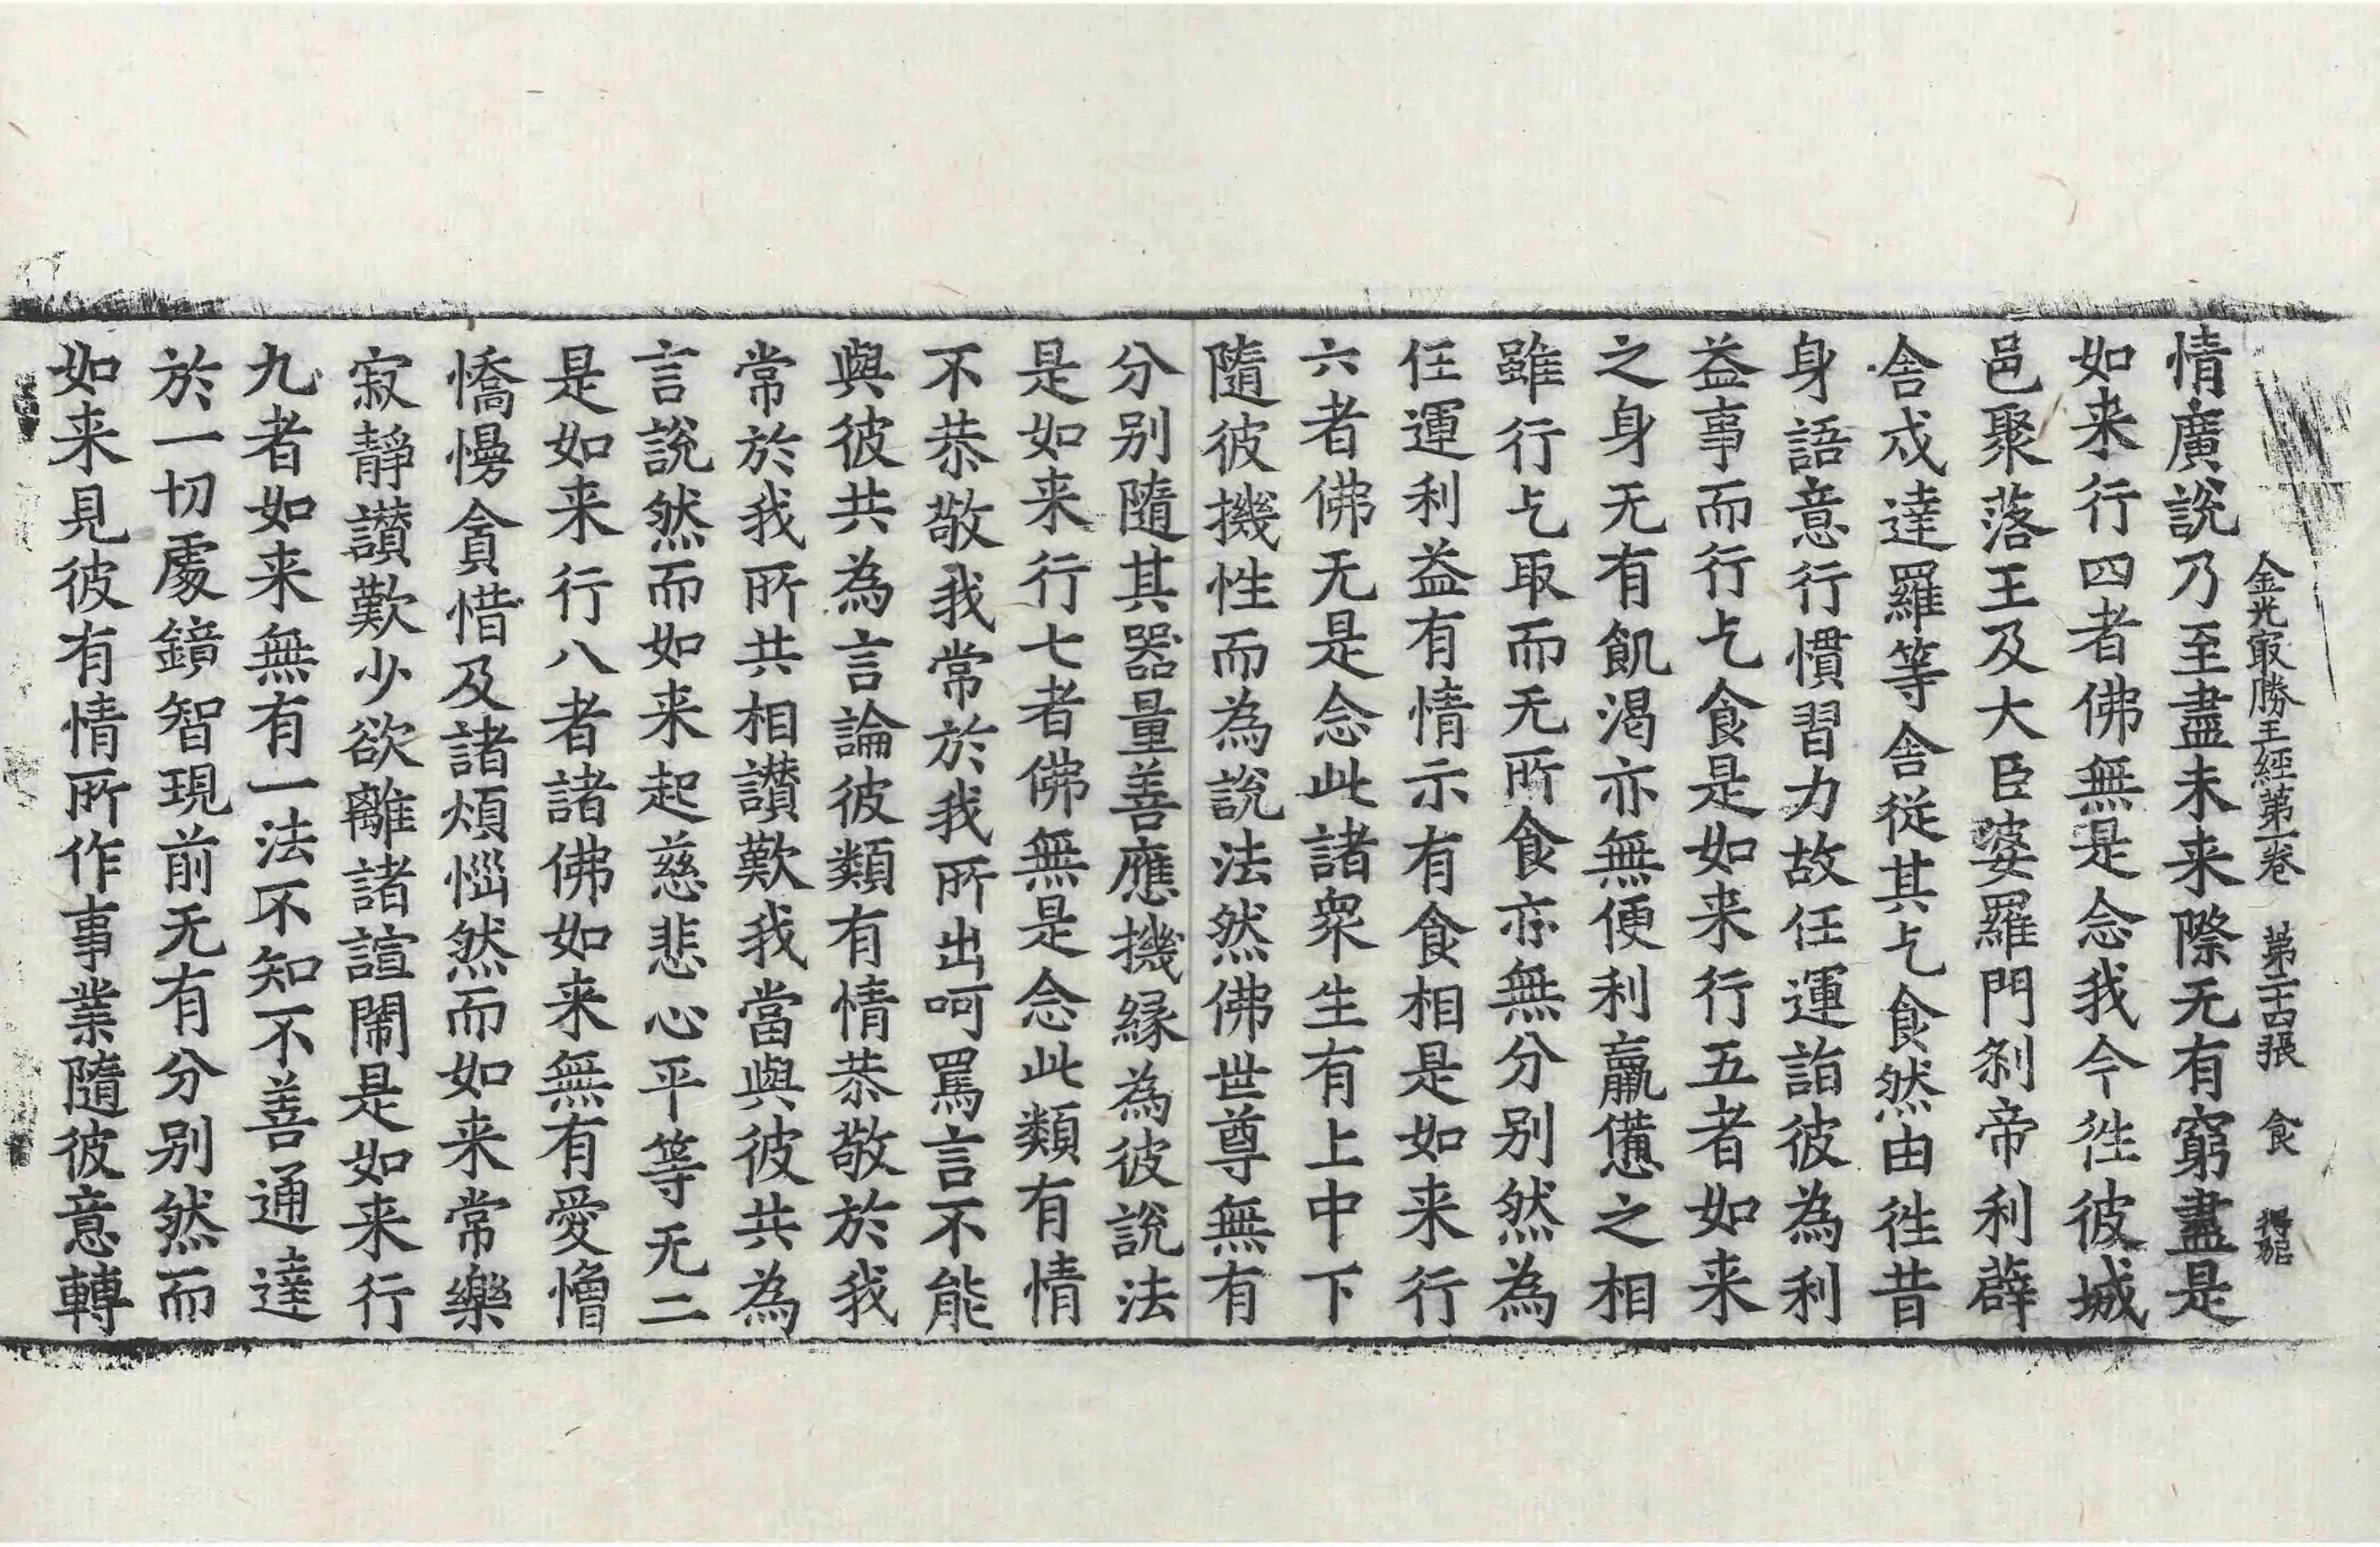 金光㝡勝王經第一卷 第二十四張 食 得㫖
情廣說乃至盡未来際无有窮盡是
如来行四者佛無是念我今徃彼城
邑聚落王及大臣婆羅門刹帝利薜
舍戍達羅等舍從其乞食然由徃昔
身語意行慣習力故任運詣彼為利
益事而行乞食是如来行五者如来
之身无有飢渴亦無便利羸憊之相
雖行乞取而无所食亦無分别然為
任運利益有情示有食相是如来行
六者佛无是念此諸衆生有上中下
隨彼機性而為說法然佛世尊無有
分别隨其器量善應機緣為彼說法
是如来行七者佛無是念此類有情
不恭敬我常於我所出呵罵言不能
與彼共為言論彼類有情恭敬於我
常於我所共相讃歎我當與彼共為
言說然而如来起慈悲心平等无二
是如来行八者諸佛如来無有愛憎
憍慢貪惜及諸煩惱然而如来常樂
寂靜讃歎少欲離諸諠閙是如来行
九者如来無有一法不知不善通達
於一切處鏡智現前无有分别然而
如来見彼有情所作事業隨彼意轉